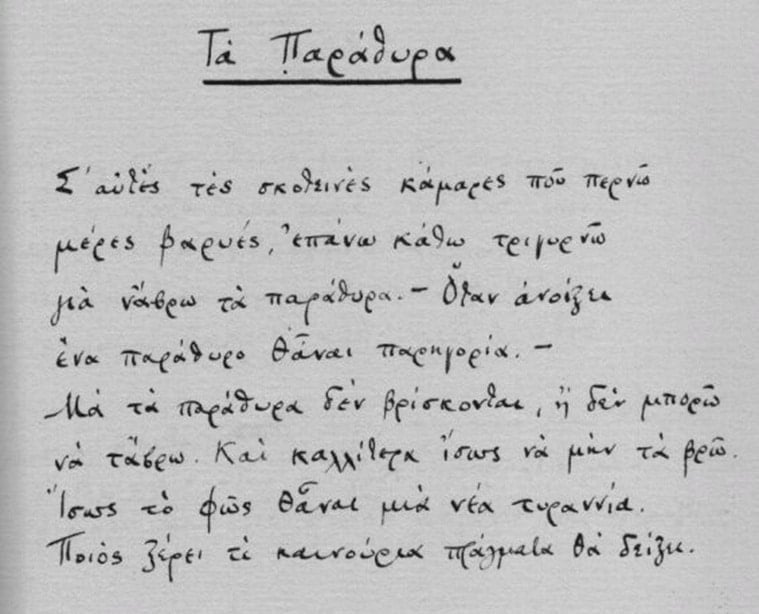 Τὰ Παράθυρα
Σ' αὐτὲς τὲς σκοτεινὲς κάμαρες ποῦ περνῶ
μέρες βαρυές, ἐπάνω κάτω τριγυρνῶ
γιὰ νἄβρω τὰ παράθυρα. — Ὅταν ἀνοίξει
ἕνα παράθυρο θἆναι παρηγορία. —
Μὰ τὰ παράθυρα δὲν βρίσκονται, ἢ δὲν μπορῶ
νὰ τἄβρω. Καὶ καλλίτερα ἴσως νὰ μὴν τὰ βρῶ.
Ἴσως τὸ φῶς θἆναι μιὰ νέα τυραννία.
Ποιὸς ξέρει τί καινούρια πράγματα θὰ δείξει.